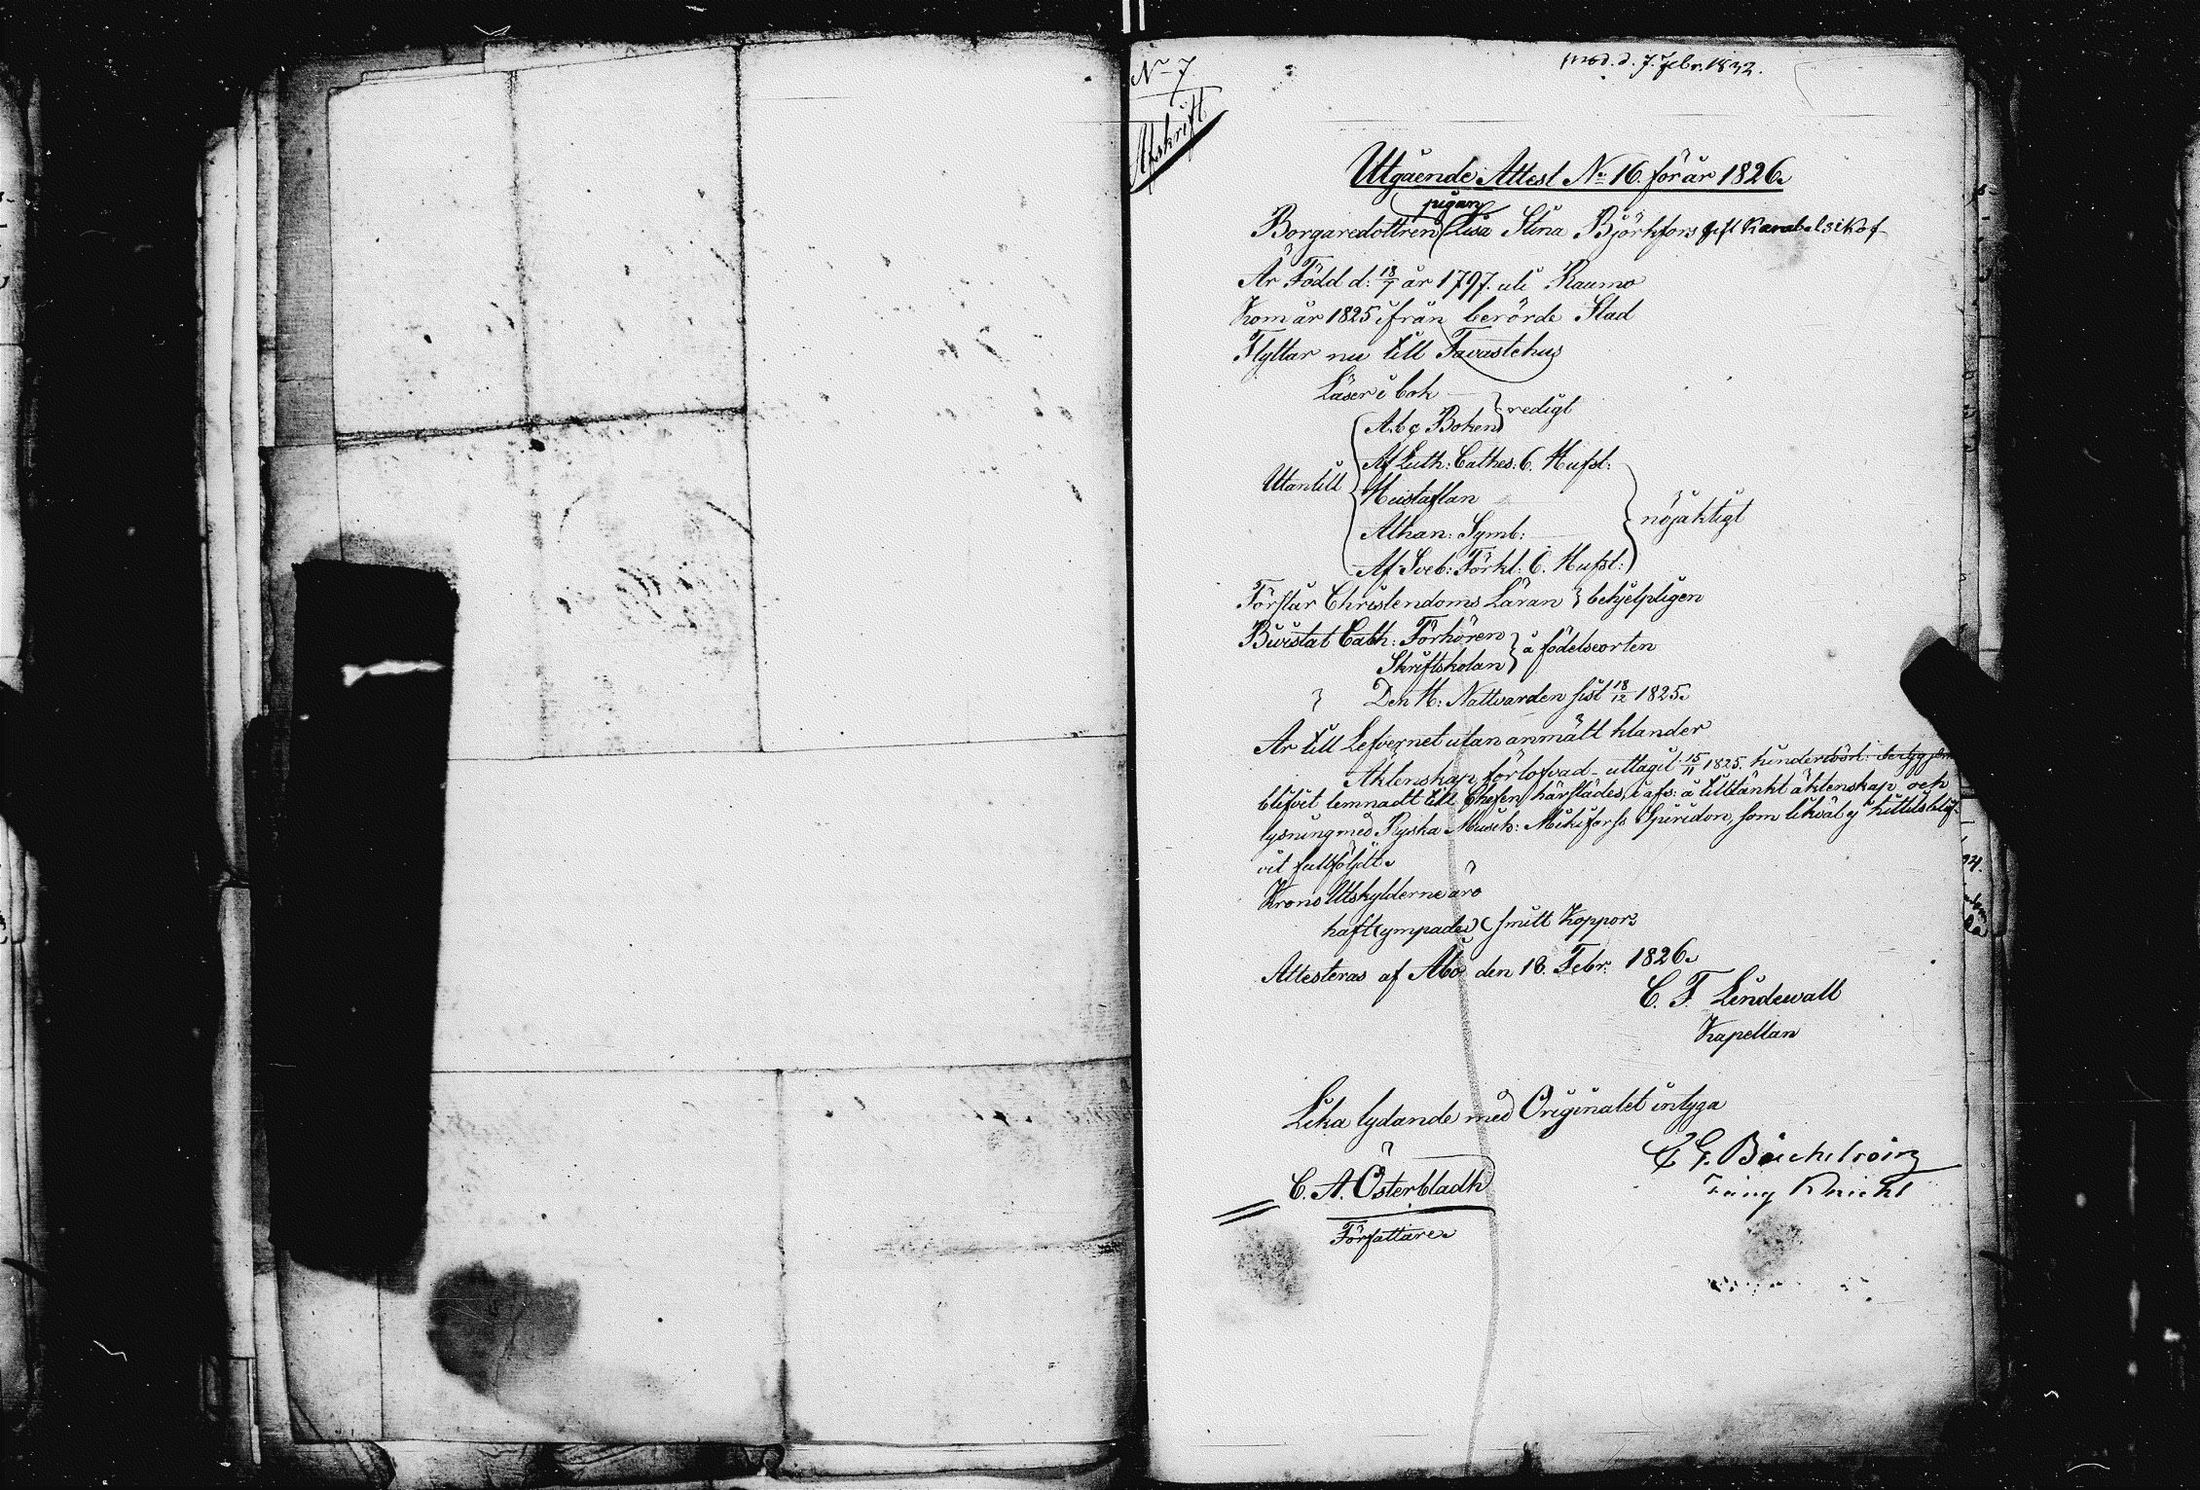 N:o 7
Afskrift
prod. d. 7. Febr. 1832.
Utgående Attest No 16. för år 1826.
pigan
Borgaredottren Lisa Stina Björkfors gift Karabelsikof
Är Född d: 18/7 år 1797. uti Raumo
Kom år 1825 ifrån berörde Stad
Flyttar nu till Tavastehus
Läser i bok
A.b.c Boken } redigt
Af Luth: Cathes: 6. Hufst:
Utantill { Hustaflan
Athan: Symb: } nöjaktigt
Af Sveb: Förkl: 6. Hufst:
Förstår Christendoms Läran } behjelpligen
Bivistat Cath: Förhören
Skriftskolan } å födelseorten
Den H: Nattvarden sist 18/12 1825.
Är till Lefvernet utan anmält klander
Äktenskap förlofvad - uttagit 15/11 1825. hinderslöst:
blifvit lemnadt till Chefen härstädes, i afs: å tilltänkt äktenskap och
lysning med Ryska Musik: Mikiforss Spiridon, som likväl ej hittils blif-
vit fullföljdt.
Krono Utskylderne äro
haft (ympade) (smitt Koppor
Attesteras af Åbo den 18. Febr. 1826.
C. F. Lindewall
Kapellan
Lika lydande med Originalet intyga
C. A. Österbladh
Författare.